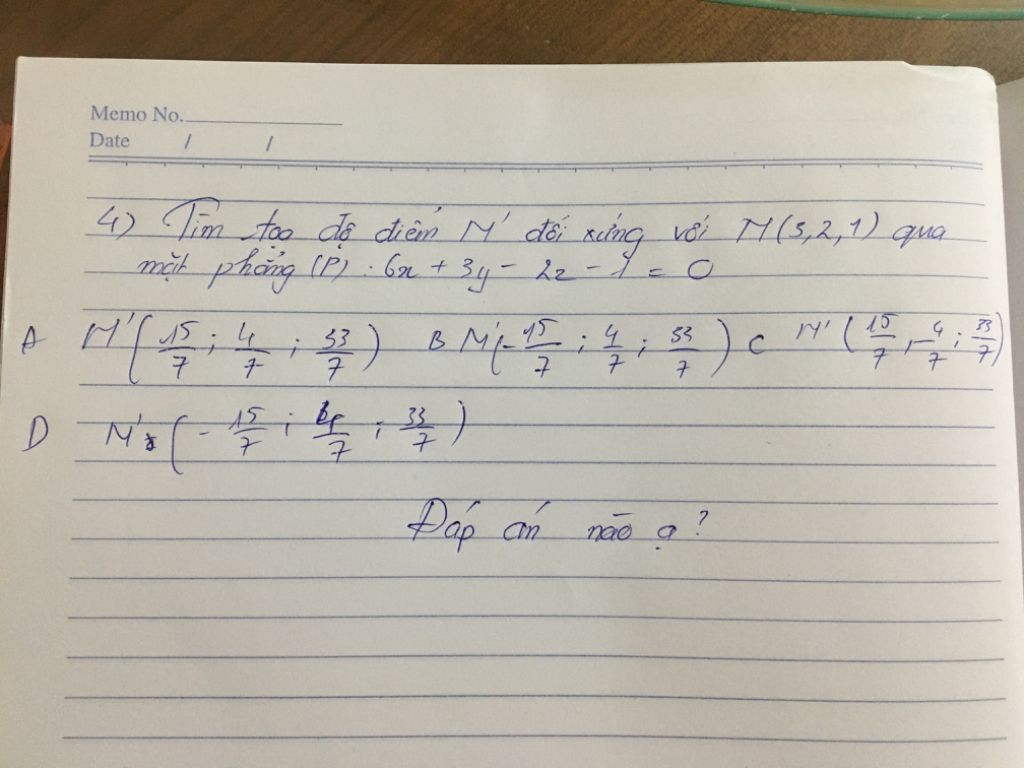 Memo No.
Date / /
4) Tìm tọa độ điểm M' đối xứng với M(3,2,1) qua
mặt phẳng (P) : 6x + 3y - 2z - 1 = 0
A M'(15/7 ; 4/7 ; 33/7) B M'(-15/7 ; 4/7 ; 33/7) C M'(15/7 , -4/7 ; 33/7)
D M'(-15/7 ; 4/7 ; 33/7)
Đáp án nào ạ?